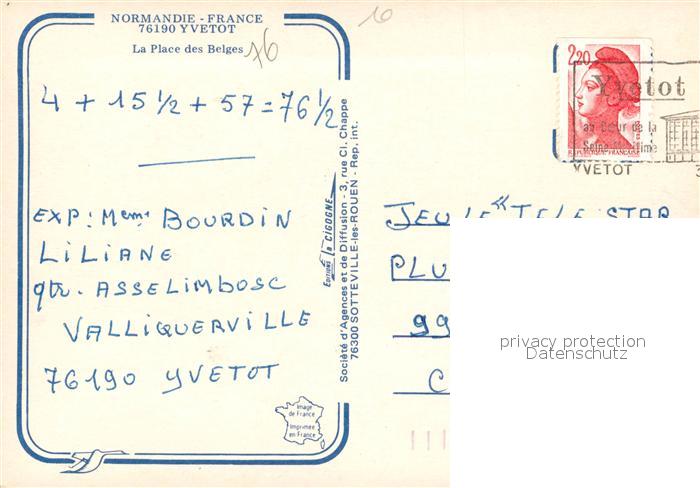 NORMANDIE - FRANCE
76190 YVETOT
La Place des Belges
76
4 + 15 1/2 + 57 = 76 1/2
EXP: Meme BOURDIN
LILIANE
qtr. ASSELIMBOSC
VALLIQUERVILLE
76190 YVETOT
Image
de France
Imprimée
en France
EDITIONS la CIGOGNE
Société d'Agences et de Diffusion - 3, rue Cl. Chappe
76300 SOTTEVILLE-les-ROUEN - Rep. int.
2,20
Yvetot
au Cœur de la
Seine Maritime
YVETOT
JEU LE "TELE STAR
PLU
99
C
privacy protection
Datenschutz